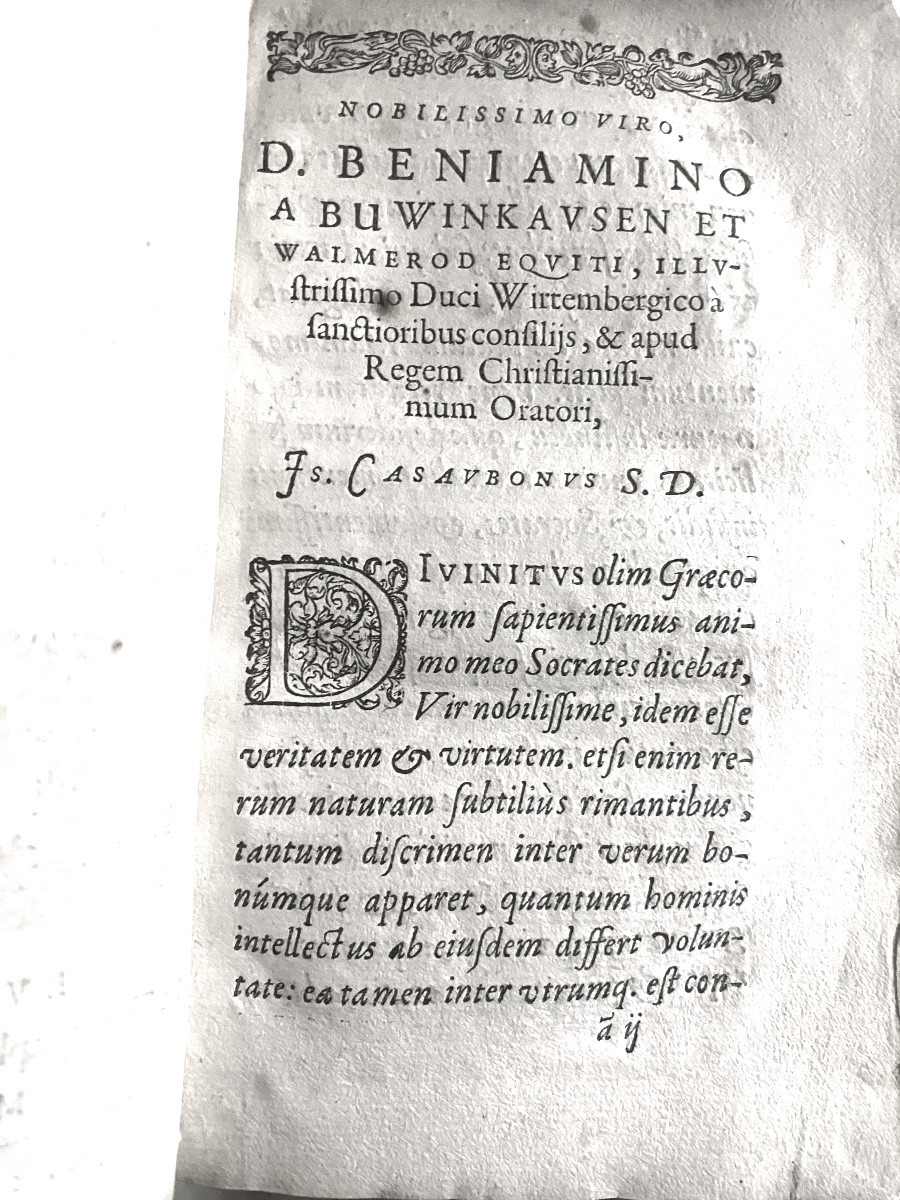 NOBILISSIMO VIRO,
D. BENIAMINO
A BUWINKAVSEN ET
WALMEROD EQVITI, ILLV-
ſtriſſimo Duci Wirtembergico à
ſanctioribus conſilijs, & apud
Regem Chriſtianiſſi-
mum Oratori,
Is. CASAVBONVS S. D.
DIVINITVS olim Græco-
rum ſapientiſſimus ani-
mo meo Socrates dicebat,
Vir nobiliſſime, idem eſſe
veritatem & virtutem. etſi enim re-
rum naturam ſubtiliùs rimantibus,
tantum diſcrimen inter verum bo-
númque apparet, quantum hominis
intellectus ab eiuſdem differt volun-
tate: ea tamen inter vtrumq. eſt con-
ã ij